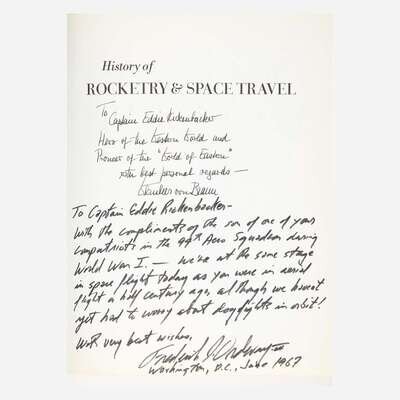 History of
ROCKETRY & SPACE TRAVEL
To Captain Eddie Rickenbacker
Hero of the Western World and
Pioneer of the "World of Eastern"
with best personal regards —
Wernher von Braun
To Captain Eddie Rickenbacker-
With the compliments of the son of one of your
compatriots in the 94th Aero Squadron during
World War I — we're at the same stage
in space flight today as you were in aerial
flight a half century ago, although we haven't
yet had to worry about dogfights in orbit!
With very best wishes,
Frederick I. Ordway III
Washington, D.C., June 1967